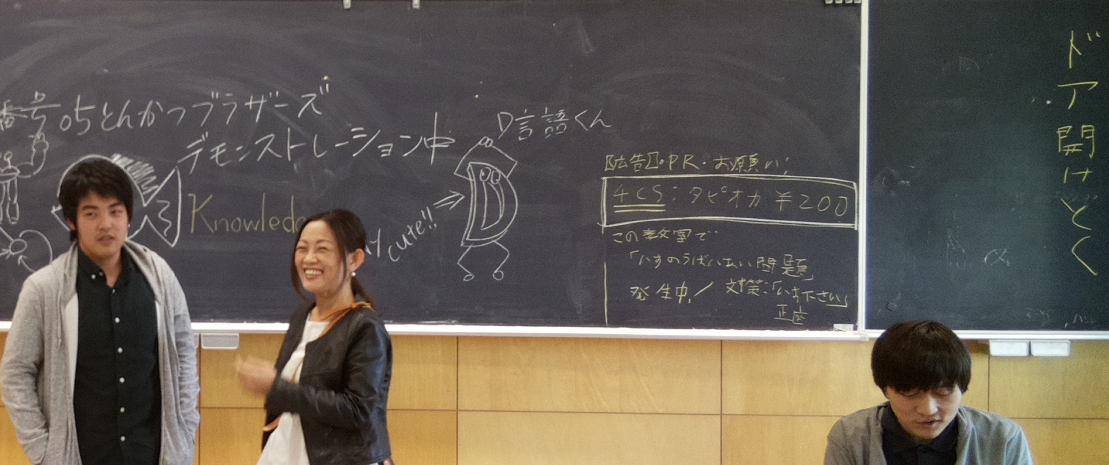 番号05とんかつブラザーズ
デモンストレーション中
Knowled
D言語くん
cute!!
【広告】・PR・お願い！
4CS：タピオカ ¥200
この 文字で
「いすのうばいあい問題」
発生中！ 対策：「いす下さい」
ドア開けとく